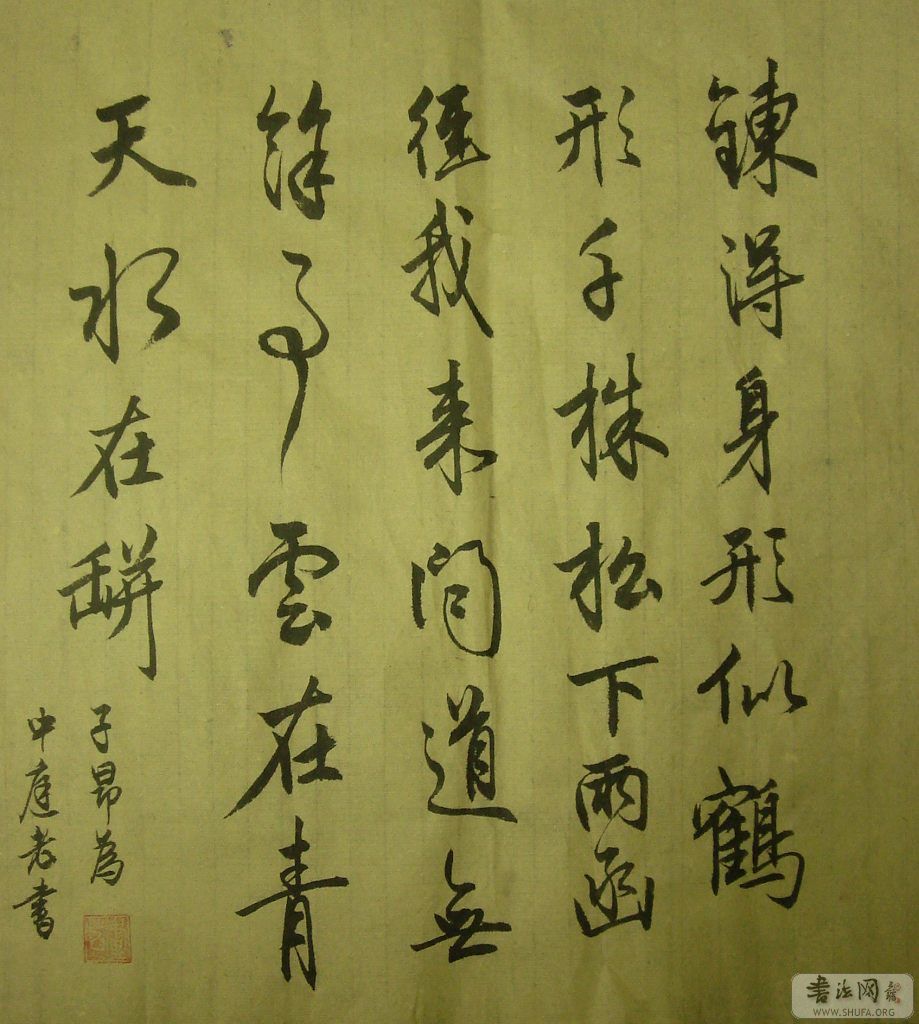 鍊得身形似鶴
形千株松下兩函
經我来問道無
餘事雲在青
天水在缾
子昂為
中庭老書
書法网
WWW.SHUFA.ORG